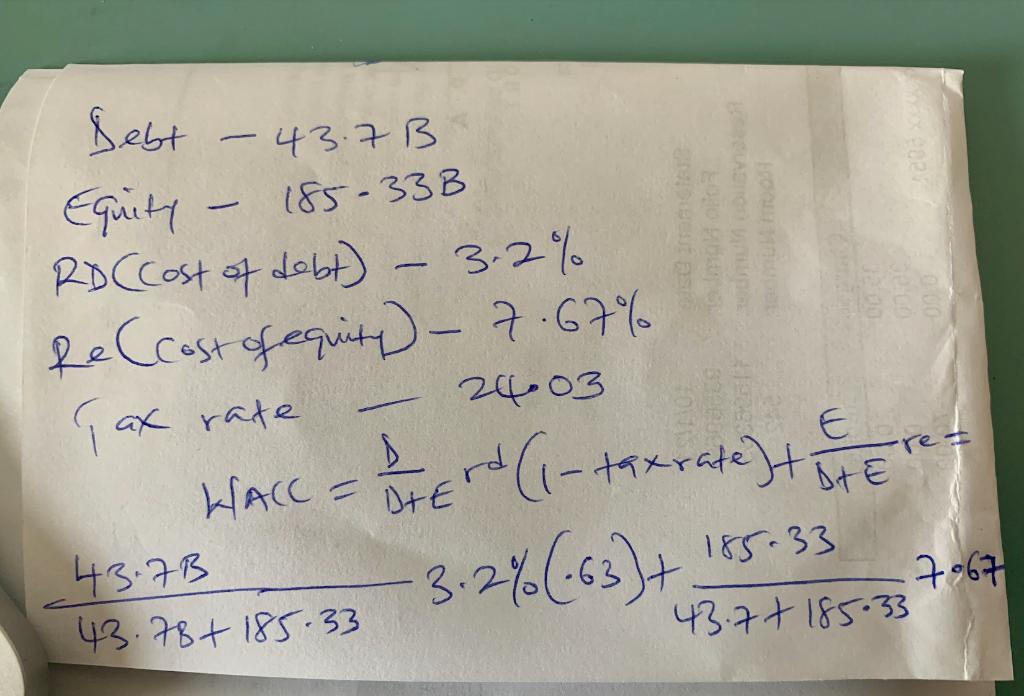 Debt - 43.7B
Equity - 185.33B
RD (Cost of debt) - 3.2%
Re (Cost of equity) - 7.67%
Tax rate - 24.03
WACC = D/D+E rd (1-tax rate) + E/D+E re =
43.7B/43.7B+185.33 3.2% (.63) + 185.33/43.7+185.33 7.67